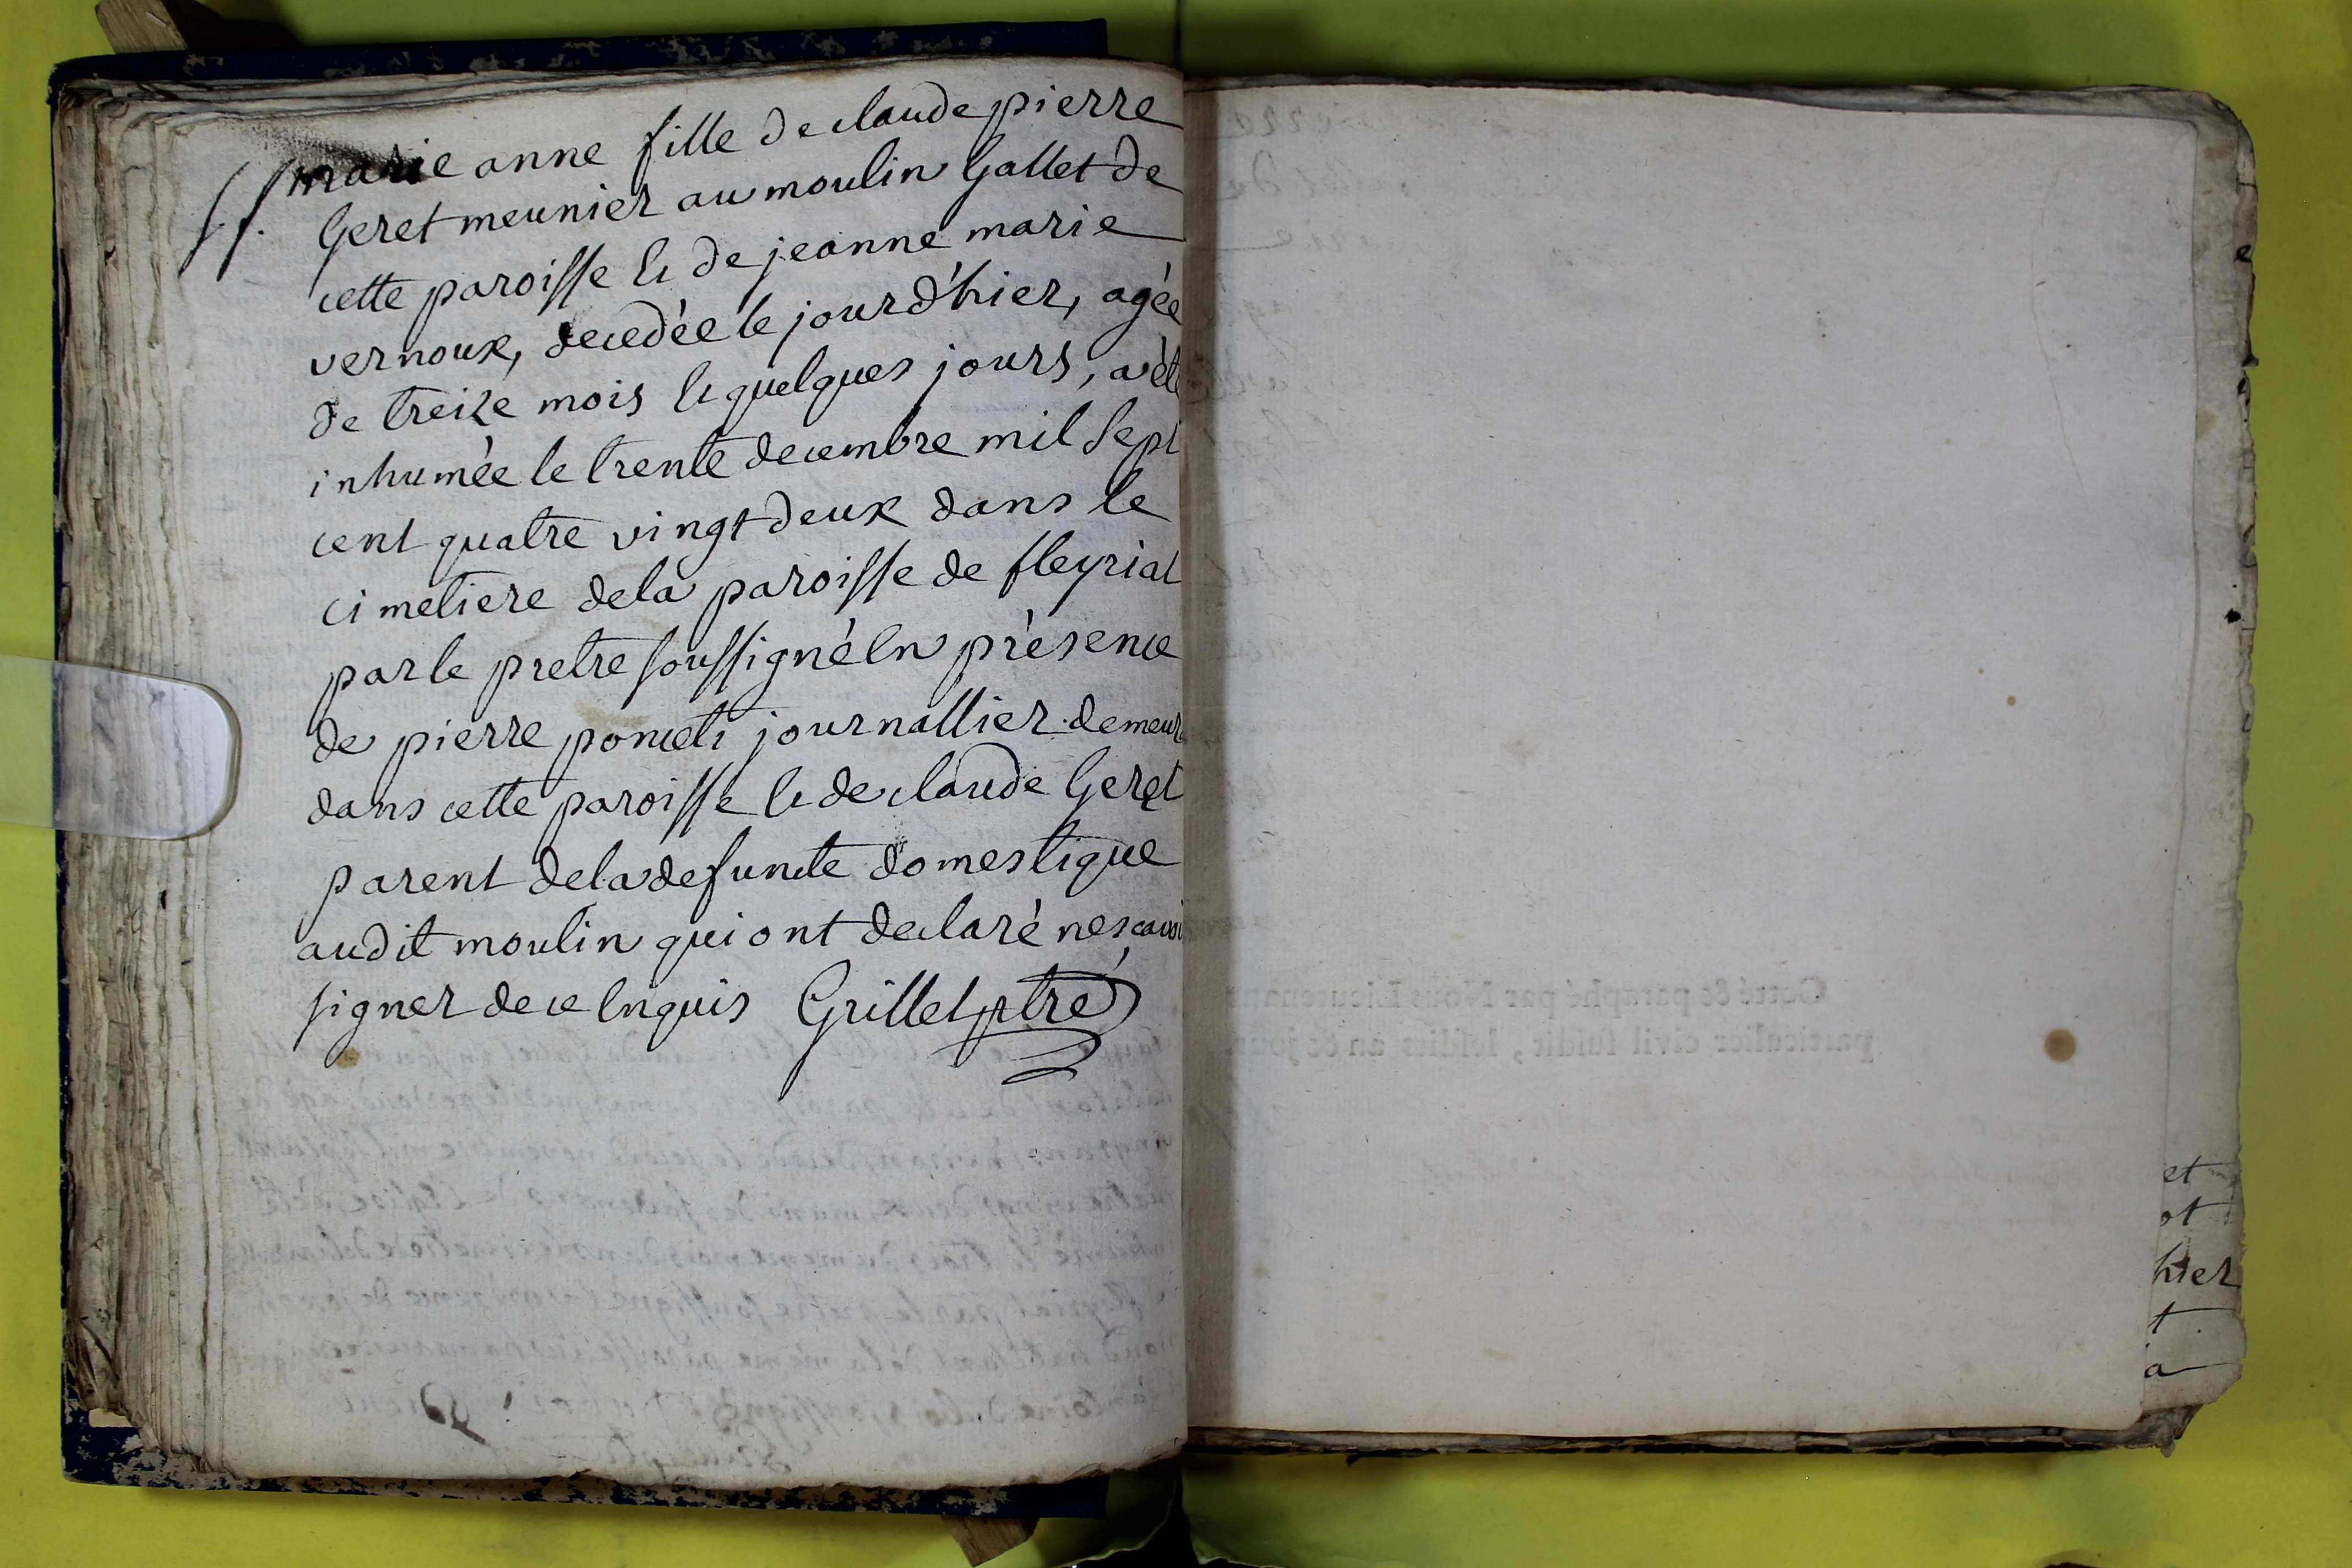 S.f. marie anne fille de claude pierre
Geret meunier au moulin Gallet de
cette paroisse & de jeanne marie
vernoux, decedée le jour d'hier, agée
de treize mois & quelques jours, a été
inhumée le trente decembre mil sept
cent quatre vingt deux dans le
cimetiere de la paroisse de fleyriat
par le pretre soussigné en présence
de pierre poncet journallier demeur
dans cette paroisse & de claude Geret
parent de la defuncte domestique
audit moulin qui ont declaré ne scavoi
signer de ce enquis Grillet ptre
et
ot
hier
t
a